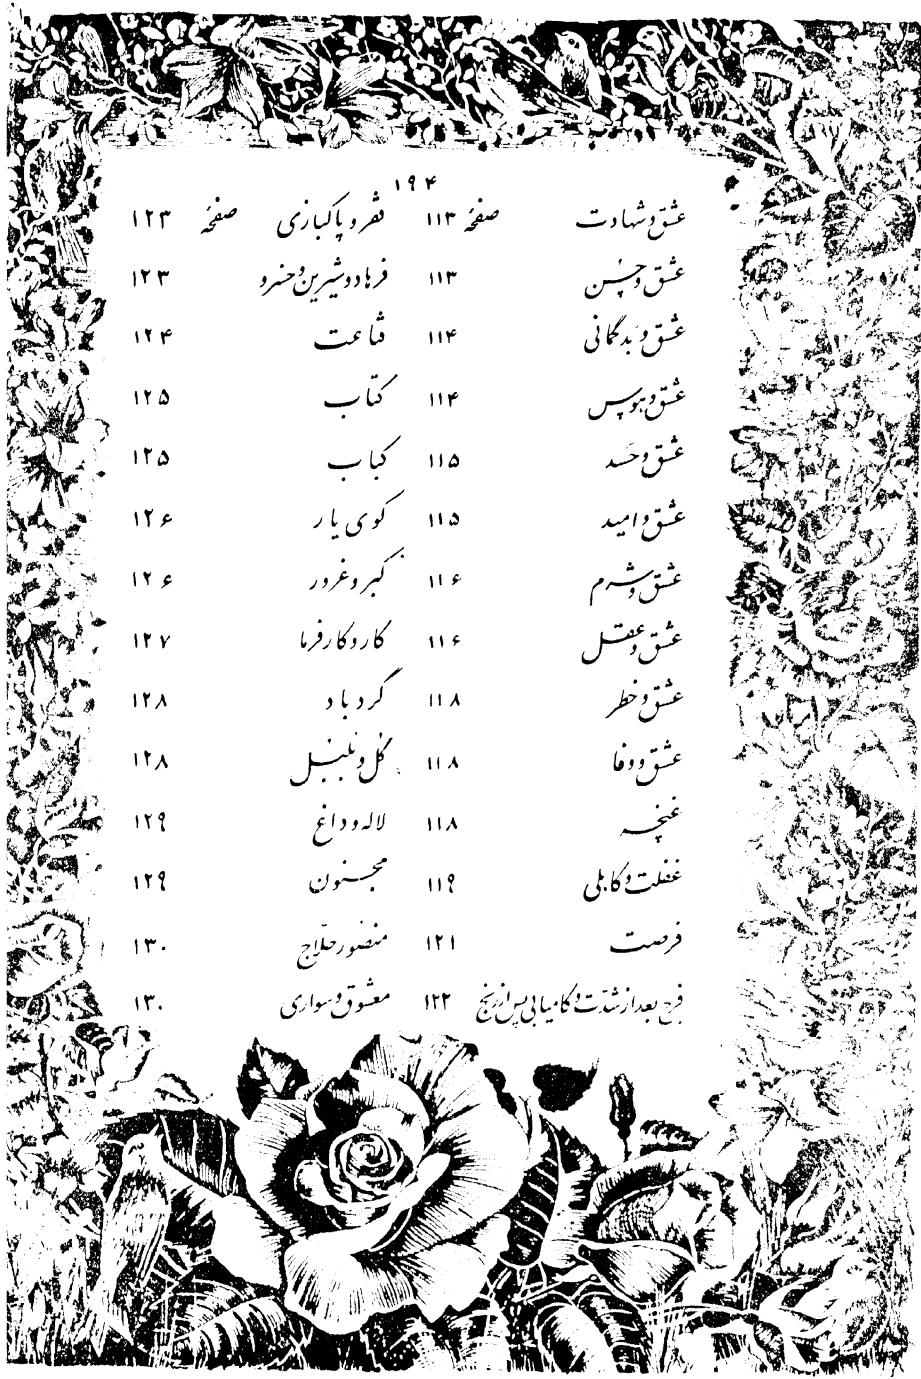 ۱۹۴
عشق و شهادت صفحهٔ ۱۱۳ فقر و پاکبازی صفحهٔ ۱۲۳
عشق و حُسن ۱۱۳ فرهاد و شیرین و خسرو ۱۲۳
عشق و بدگمانی ۱۱۴ قناعت ۱۲۴
عشق و هوس ۱۱۴ کتاب ۱۲۵
عشق و حَسد ۱۱۵ کباب ۱۲۵
عشق و امید ۱۱۵ کوی یار ۱۲۶
عشق و شرم ۱۱۶ کبر و غرور ۱۲۶
عشق و عقل ۱۱۶ کار و کارفرما ۱۲۷
عشق و خطر ۱۱۸ گردباد ۱۲۸
عشق و وفا ۱۱۸ گل و بلبل ۱۲۸
غنچه ۱۱۸ لاله و داغ ۱۲۹
غفلت و کاهلی ۱۱۹ مجنون ۱۲۹
فرصت ۱۲۱ منصور حلّاج ۱۳۰
فرج بعد از شدّت و کامیابی پس از رنج ۱۲۲ معشوق و سواری ۱۳۰